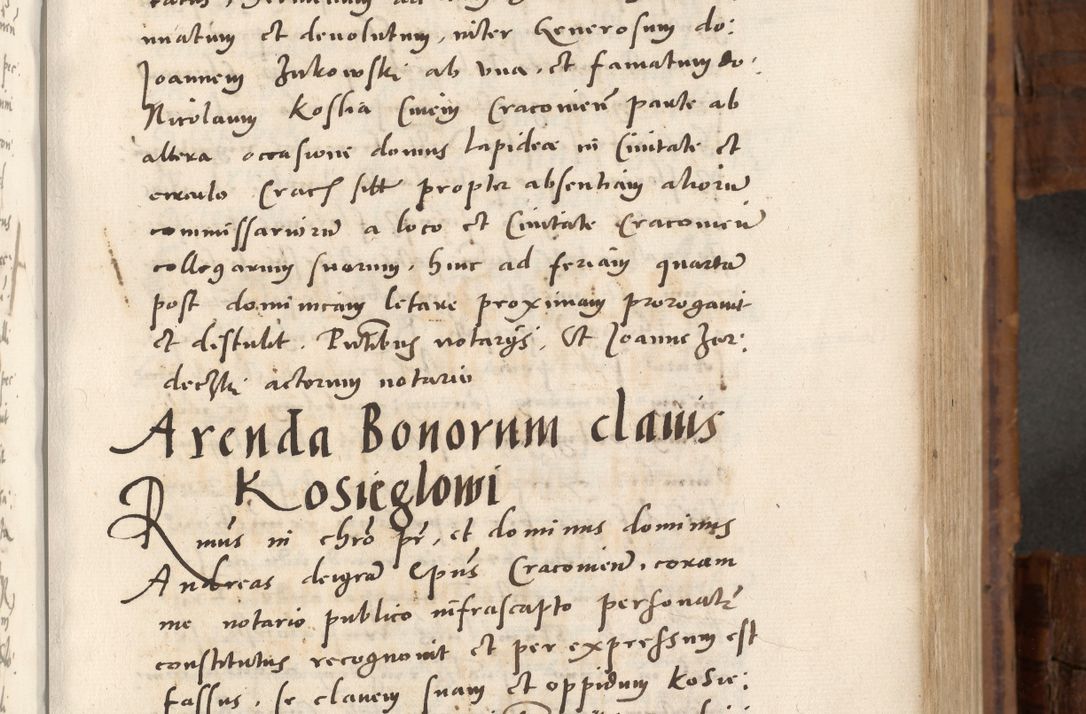 inatum et deuolutum, inter Generosum do:
Joannem Zukowski ab vna, et famatum do.
Nicolaum Koslia Ciuem Cracouien parte ab
altera occasione domus lapideæ in Ciuitate et
circulo Crac sitt propter absentiam aliorū
commissariorū a loco et Ciuitate Cracouien
collegarum suorum, hinc ad feriam quartā
post dominicam letare proximam prorogauit
et destulit. Pntibus notarijs, Et Joanne Zar:
deczki actorum notario
Arenda Bonorum clauis
Kosieglowi
Rmus in chro pr, et dominus dominus
Andreas dei gra Epus Cracouien, coram
me notario publico infrascripto personalr
constitutus recognouit et per expressum est
fassus, se clauem suam et oppidum Kosie: